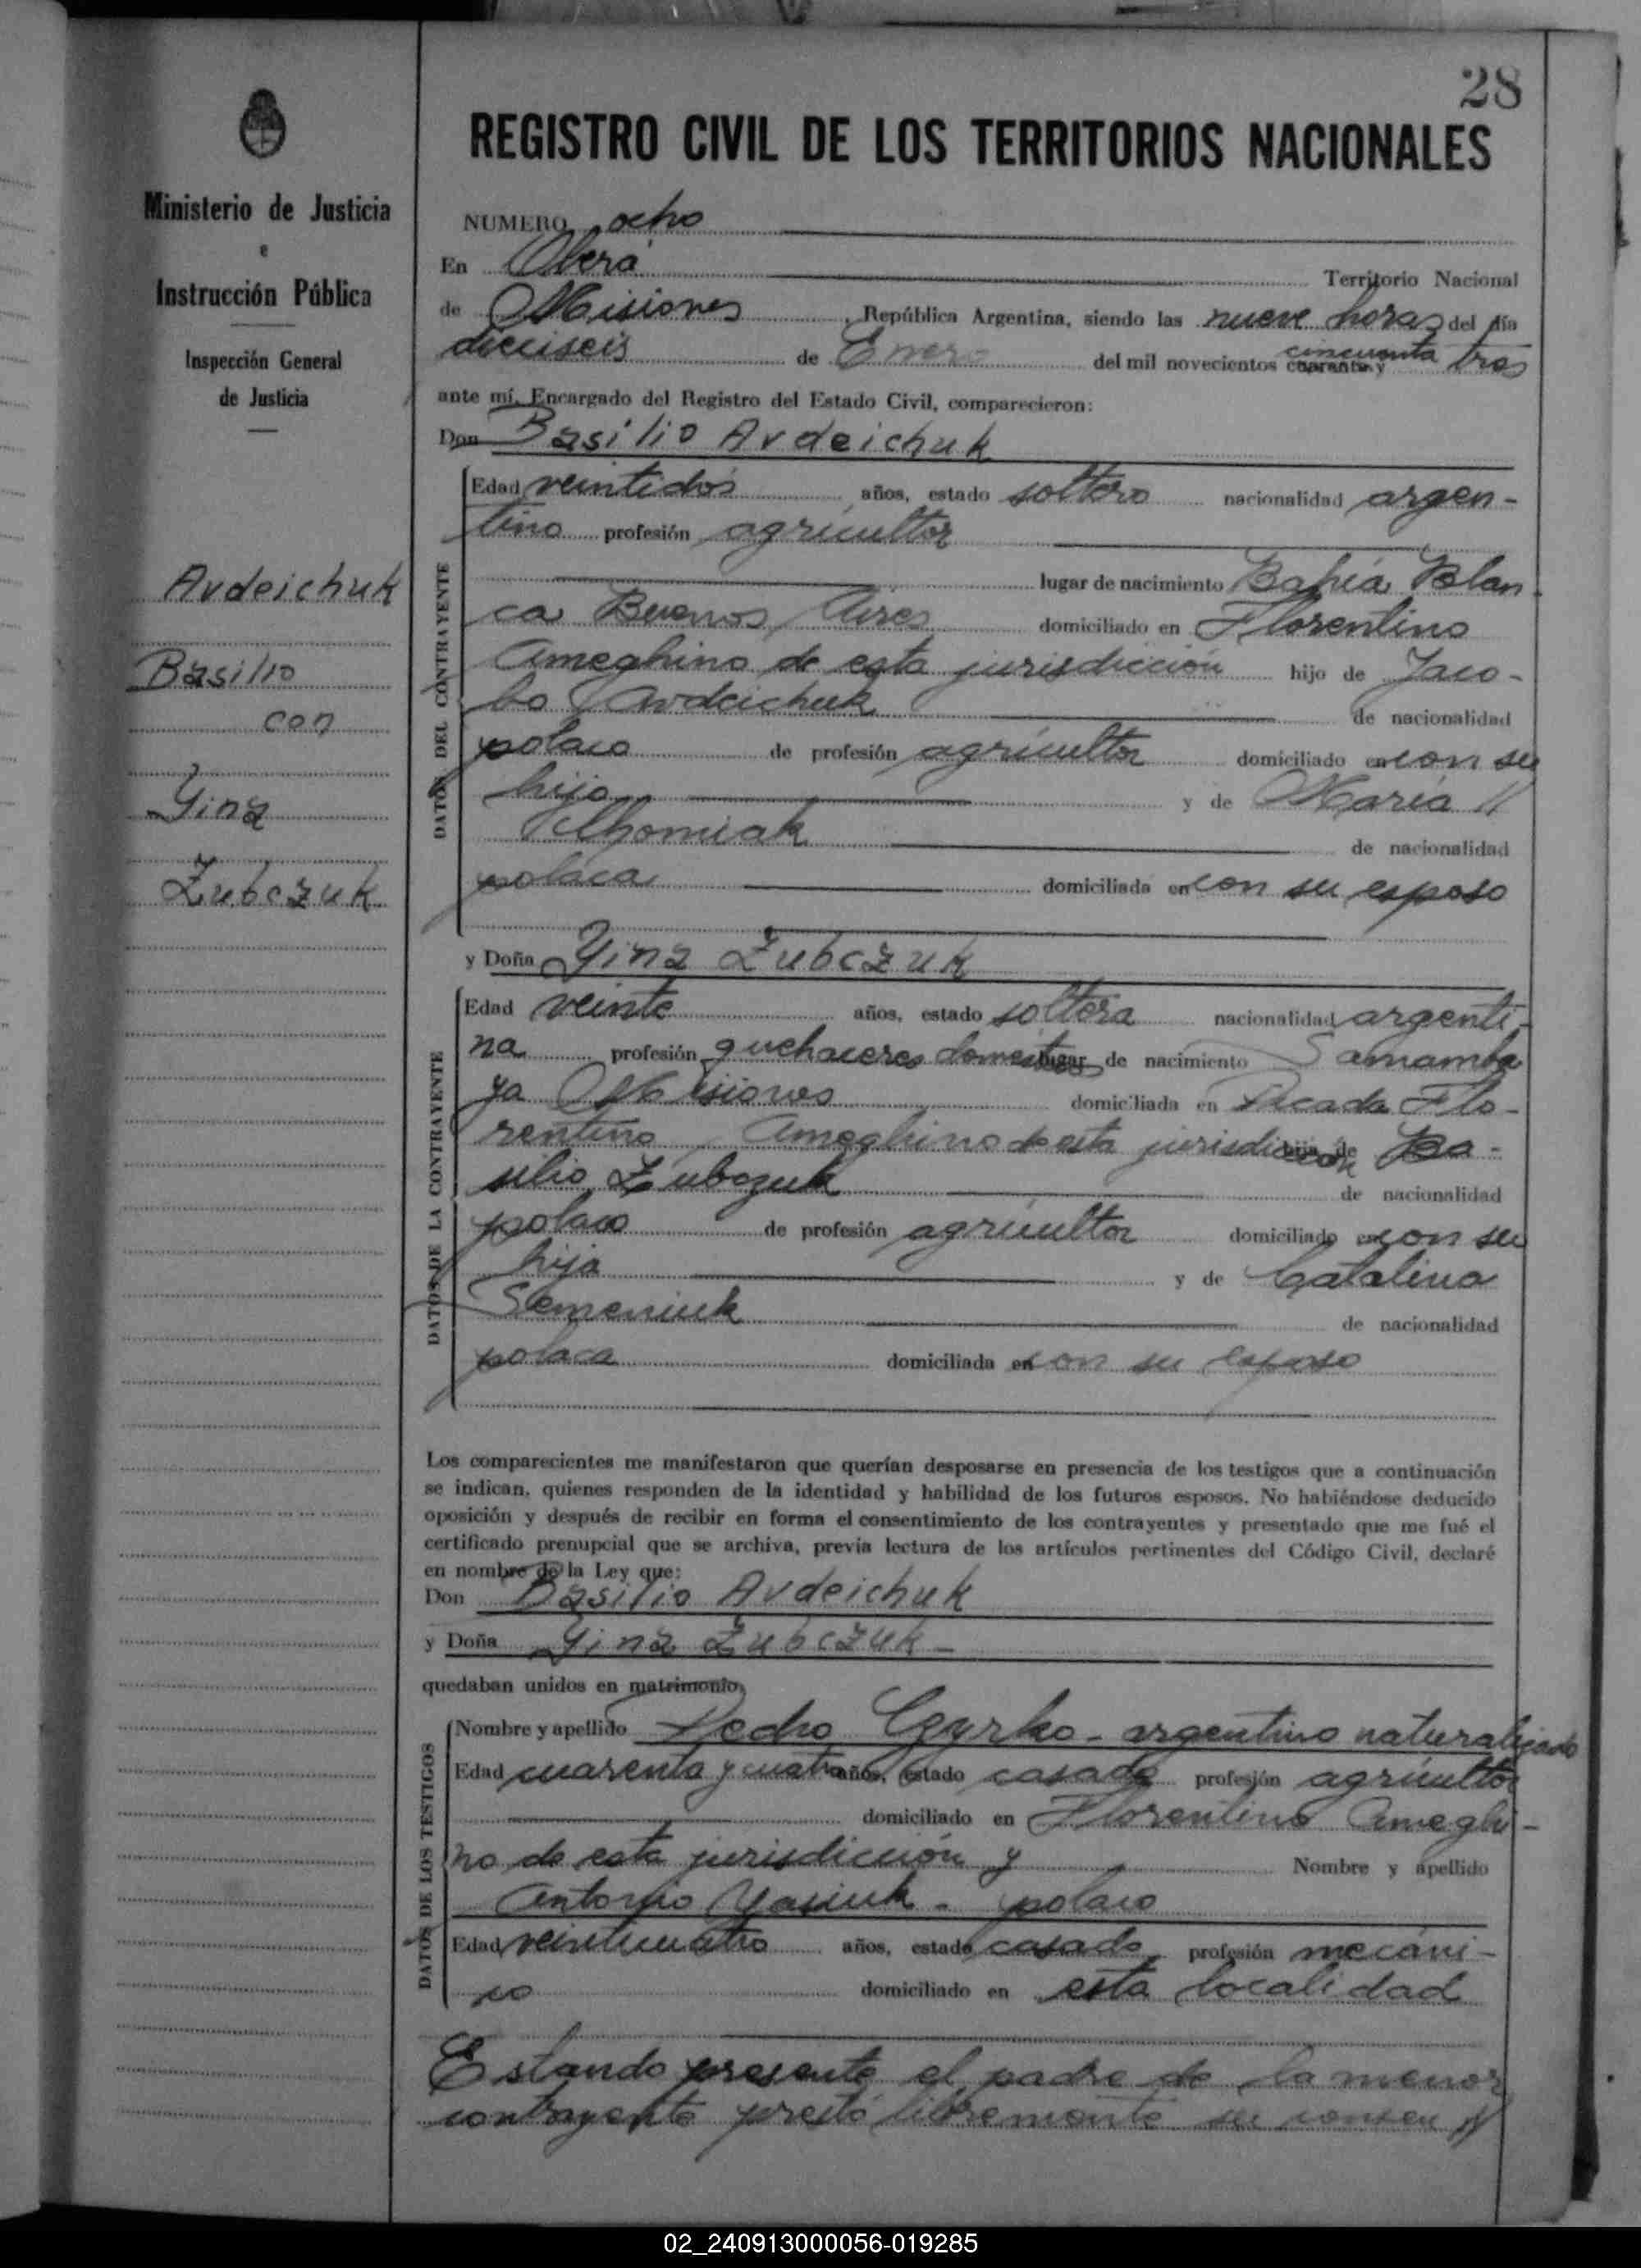 28
REGISTRO CIVIL DE LOS TERRITORIOS NACIONALES
Ministerio de Justicia
e
Instrucción Pública
Inspección General
de Justicia
Avdeichuk
Basilio
con
Yina
Zubczuk
NUMERO ocho
En Oberá Territorio Nacional
de Misiones, República Argentina, siendo las nueve horas del día
dieciseis de Enero del mil novecientos cuarenta y cincuenta tres
ante mí, Encargado del Registro del Estado Civil, comparecieron:
Don Basilio Avdeichuk
DATOS DEL CONTRAYENTE
Edad veintidós años, estado soltero nacionalidad argen-
tino profesión agricultor
lugar de nacimiento Bahía Blan
ca Buenos Aires domiciliado en Florentino
Ameghino de esta jurisdicción hijo de Jaco-
bo Avdeichuk de nacionalidad
polaco de profesión agricultor domiciliado en con su
hijo y de María //
de nacionalidad
polaca domiciliada en con su esposo
y Doña Yina Zubczuk
DATOS DE LA CONTRAYENTE
Edad veinte años, estado soltera nacionalidad argenti-
na profesión quehaceres domésticos lugar de nacimiento Samamba
ya Misiones domiciliada en Picada Flo-
rentino Ameghino de esta jurisdicción hija de Ba-
silio Zubczuk de nacionalidad
polaco de profesión agricultor domiciliado en con su
hija y de Catalina
Semeniuk de nacionalidad
polaca domiciliada en con su esposo
Los comparecientes me manifestaron que querían desposarse en presencia de los testigos que a continuación
se indican, quienes responden de la identidad y habilidad de los futuros esposos. No habiéndose deducido
oposición y después de recibir en forma el consentimiento de los contrayentes y presentado que me fué el
certificado prenupcial que se archiva, previa lectura de los artículos pertinentes del Código Civil, declaré
en nombre de la Ley que:
Don Basilio Avdeichuk
y Doña Yina Zubczuk -
quedaban unidos en matrimonio,
DATOS DE LOS TESTIGOS
Nombre y apellido Pedro Czyrko - argentino naturalizado
Edad cuarenta y cuatro años, estado casado profesión agricultor
domiciliado en Florentino Ameghi-
no de esta jurisdicción y Nombre y apellido
Antonio Yasiuk - polaco
Edad veinticuatro años, estado casado profesión mecáni-
co domiciliado en esta localidad
Estando presente el padre de la menor
contrayente prestó libremente su consen //
02_240913000056-019285